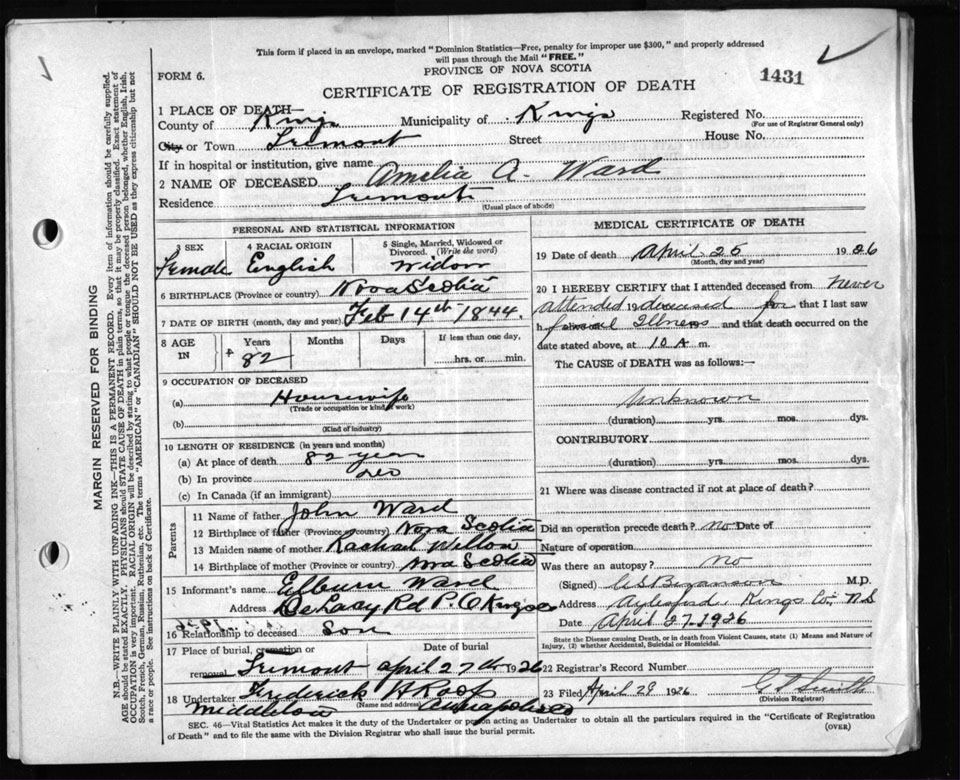 This form if placed in an envelope, marked "Dominion Statistics—Free, penalty for improper use $300," and properly addressed
will pass through the Mail "FREE."
PROVINCE OF NOVA SCOTIA
FORM 6.
CERTIFICATE OF REGISTRATION OF DEATH
1431
1 PLACE OF DEATH—
County of Kings Municipality of Kings Registered No.
(For use of Registrar General only)
City or Town Tremont Street House No.
If in hospital or institution, give name
2 NAME OF DECEASED Amelia A. Ward
Residence Tremont
(Usual place of abode)
PERSONAL AND STATISTICAL INFORMATION
3 SEX
Female
4 RACIAL ORIGIN
English
5 Single, Married, Widowed or
Divorced. (Write the word)
Widow
6 BIRTHPLACE (Province or country) Nova Scotia
7 DATE OF BIRTH (month, day and year) Feb 14th 1844.
8 AGE
IN
Years
82
Months
Days
If less than one day,
hrs. or min.
9 OCCUPATION OF DECEASED
(a) Housewife
(Trade or occupation or kind of work)
(b)
(Kind of industry)
10 LENGTH OF RESIDENCE (in years and months)
(a) At place of death 82 year
(b) In province
(c) In Canada (if an immigrant)
Parents
11 Name of father John Ward
12 Birthplace of father (Province or country) Nova Scotia
13 Maiden name of mother Rachael
14 Birthplace of mother (Province or country) Nova Scotia
15 Informant's name Elburn Ward
Address Rd P.O Kings co
16 Relationship to deceased Son
17 Place of burial, cremation or
removal Tremont
Date of burial
april 27th 1926
18 Undertaker Frederick H Roop
(Name and address)
Middleton Annapolis co
MEDICAL CERTIFICATE OF DEATH
19 Date of death April 25 1926
(Month, day and year)
20 I HEREBY CERTIFY that I attended deceased from Never
attended 19 deceased for that I last saw
h Illness and that death occurred on
date stated above, at 10 A m.
The CAUSE of DEATH was as follows:—
Unknown
(duration) yrs. mos. dys.
CONTRIBUTORY
(duration) yrs. mos. dys.
21 Where was disease contracted if not at place of death?
Did an operation precede death? no Date of
Nature of operation
Was there an autopsy? No
(Signed) M.D.
Address Aylesford, Kings Co. N.S
Date April 27-1926
State the Disease causing Death, or in death from Violent Causes, state (1) Means and Nature of
Injury, (2) whether Accidental, Suicidal or Homicidal.
22 Registrar's Record Number
23 Filed April 29 1926 Smith
(Division Registrar)
SEC. 46—Vital Statistics Act makes it the duty of the Undertaker or person acting as Undertaker to obtain all the particulars required in the "Certificate of Registration
of Death" and to file the same with the Division Registrar who shall issue the burial permit.
(OVER)
MARGIN RESERVED FOR BINDING
N.B.—WRITE PLAINLY WITH UNFADING INK—THIS IS A PERMANENT RECORD. Every item of information should be carefully supplied.
AGE should be stated EXACTLY. PHYSICIANS should STATE CAUSE OF DEATH in plain terms, so that it may be properly classified. Exact statement of
OCCUPATION is very important. RACIAL ORIGIN will be described by stating to what people or tongue the deceased person belonged, whether English, Irish,
Scotch, French, German, Russian, Ruthenian, etc. The terms "AMERICAN" or "CANADIAN" SHOULD NOT BE USED as they express citizenship but not
a race or people. See instructions on back of Certificate.